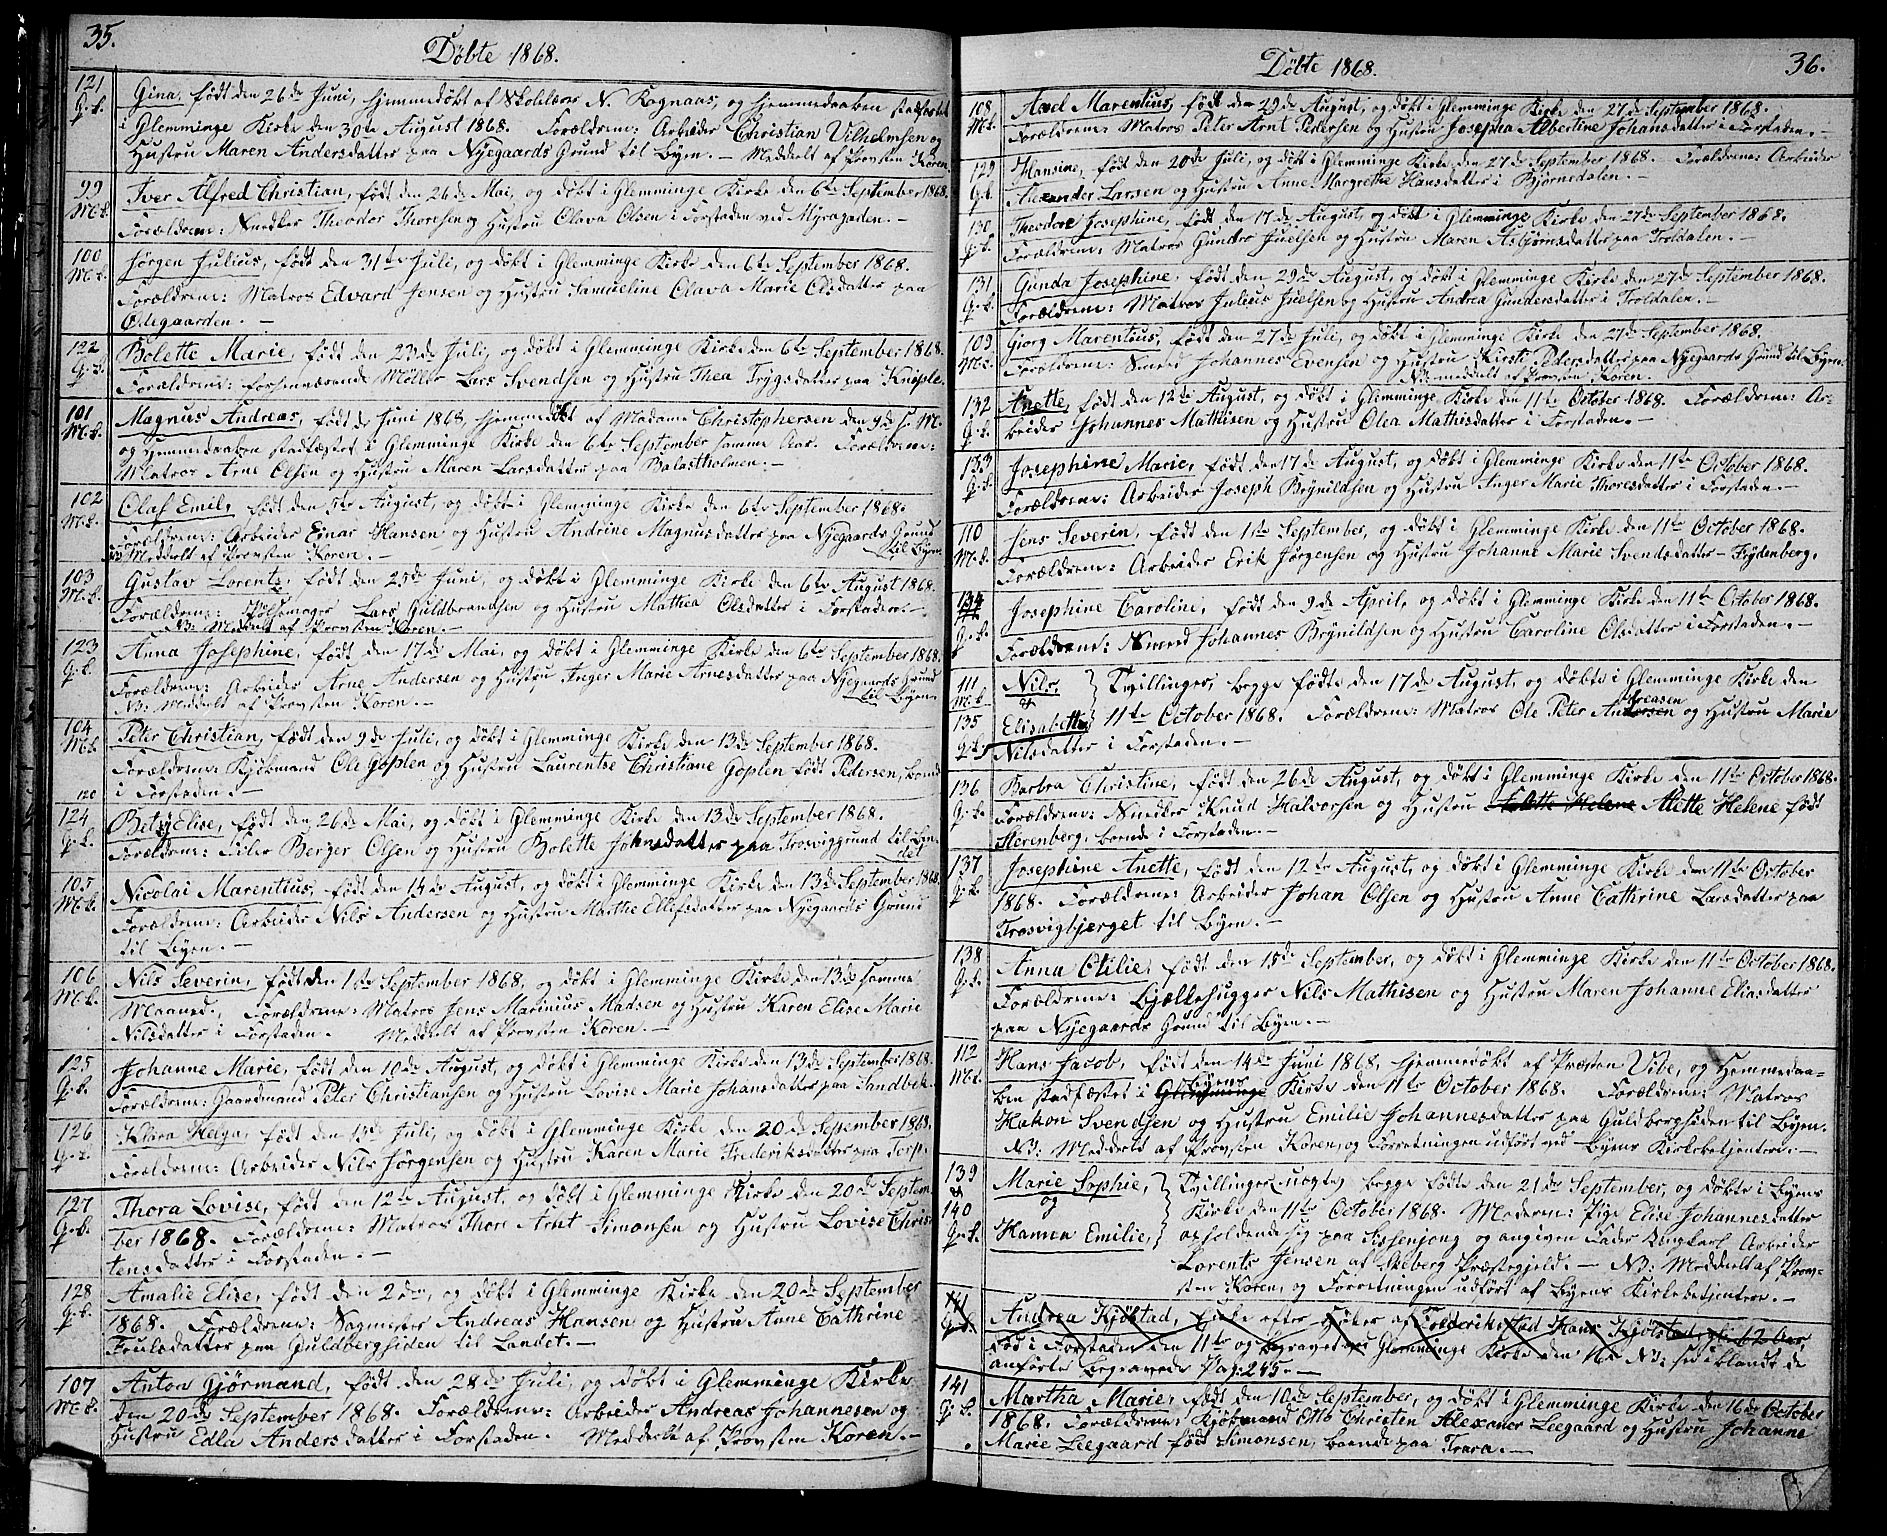 35.
Döbte 1868.
121 Gina, født den 26de Juni, hjemmedøbt af Skolelærer N. Kognaas, og hjemmedaaben stadfæstet
G. S. i Glemminge Kirke den 30te August 1868. Forældrene: Arbeider Christian Vilhelmsen og
Hustru Maren Andersdatter paa Nyegaards Grund til Byen. — Meddelt af Provsten Koren.
99 Iver Alfred Christian, født den 26de Mai, og døbt i Glemminge Kirke den 6te September 1868.
M. S. Forældrene: Snedker Theodor Thoresen og Hustru Olava Olsen i Forstaden ved Myragaden. —
100 Jørgen Julius, født den 31te Juli, og døbt i Glemminge Kirke den 6te September 1868.
M. S. Forældrene: Matros Edvard Jensen og Hustru Samueline Olava Marie Olsdatter paa
Ødegaarden. —
122 Bolette Marie, født den 23de Juli, og døbt i Glemminge Kirke den 6te September 1868.
G. S. Forældrene: forhenværende Møller Lars Svendsen og Hustru Thea Trygsdatter paa Kniple.
101 Magnus Andreas, født de Juni 1868, hjemmedøbt af Madame Christophersen den 9de s. M.
M. S. og Hjemmedaaben stadfæstet i Glemminge Kirke den 6te September samme Aar. Forældrene:
Matros Arne Olsen og Hustru Maren Larsdatter paa Balastholmen. —
102 Olaf Emil, født den 5te August, og døbt i Glemminge Kirke den 6te September 1868.
M. S. Forældrene: Arbeider Einar Hansen og Hustru Andrine Magnusdatter paa Nyegaards Grund
NB. Meddelt af Provsten Koren. — til Byen.
103 Gustav Lorents, født den 23de Juni, og døbt i Glemminge Kirke den 6te August 1868.
M. S. Forældrene: Lars Guldbrandsen og Hustru Mathea Olsdatter i Forstaden. —
NB. Meddelt af Provsten Koren. —
123 Anna Josephine, født den 17de Mai, og døbt i Glemminge Kirke den 6te September 1868.
G. S. Forældrene: Arbeider Arne Andersen og Hustru Inger Marie Arnesdatter paa Nyegaards Grund
NB. Meddelt af Provsten Koren. — til Byen.
104 Peter Christian, født den 9de Juli, og døbt i Glemminge Kirke den 13de September 1868.
M. S. Forældrene: Kjøbmand Ole Goplen og Hustru Laurentse Christiane Goplen født Pedersen, boende
120 i Forstaden. —
124 Betzy Elise, født den 26de Mai, og døbt i Glemminge Kirke den 13de September 1868.
G. S. Forældrene: Berger Olsen og Hustru Bolette Johnsdatter paa Trosviggrund til Landet.
105 Nicolai Marentius, født den 14de August, og døbt i Glemminge Kirke den 13de September 1868.
M. S. Forældrene: Arbeider Nils Andersen og Hustru Marthe Ellefsdatter paa Nyegaards Grund
til Byen. —
106 Nils Severin, født den 1ste September 1868, og døbt i Glemminge Kirke den 13de samme
M. S. Maaned. Forældrene: Matros Jens Marinius Madsen og Hustru Karen Elise Marie
Nilsdatter i Forstaden. Meddelt af Provsten Koren. —
125 Johanne Marie, født den 10de August, og døbt i Glemminge Kirke den 13de September 1868.
G. S. Forældrene: Gaardmand Peter Christiansen og Hustru Lovise Marie Johansdatter paa Sandbek.
126 Klara Helga, født den 15de Juli, og døbt i Glemminge Kirke den 20de September 1868.
G. S. Forældrene: Arbeider Nils Jørgensen og Hustru Karen Marie Frederiksdatter paa Torp.
127 Thora Lovise, født den 12te August, og døbt i Glemminge Kirke den 20de Septem-
G. S. ber 1868. Forældrene: Matros Thore Arnt Simonsen og Hustru Lovise Chris-
tensdatter i Forstaden. —
128 Amalie Elise, født den 2den, og døbt i Glemminge Kirke den 20de September
G. S. 1868. Forældrene: Sagmester Andreas Hansen og Hustru Anne Cathrine
Truelsdatter paa Guldbergsiden til Landet. —
107 Anton Gjørmand, født den 28de Juli, og døbt i Glemminge Kirke
M. S. den 20de September 1868. Forældrene: Arbeider Andreas Johannesen og
Hustru Edla Andersdatter i Forstaden. Meddelt af Provsten Koren. —
36.
Döbte 1868.
108 Axel Marentius, født den 29de August, og døbt i Glemminge Kirke den 27de September 1868.
M. S. Forældrene: Matros Peter Arnt Pedersen og Hustru Josepha Albertine Johansdatter i Forstaden. —
129 Hansine, født den 20de Juli, og døbt i Glemminge Kirke den 27de September 1868. Forældrene: Arbeider
G. S. Alexander Larsen og Hustru Anne Margrethe Hansdatter i Bjørnedalen. —
130 Theodore Josephine, født den 17de August, og døbt i Glemminge Kirke den 27de September 1868.
G. S. Forældrene: Matros Gunder Juelsen og Hustru Maren Asbjørnsdatter paa Troldalen. —
131 Gunda Josephine, født den 29de August, og døbt i Glemminge Kirke den 27de September 1868.
G. S. Forældrene: Matros Julius Juelsen og Hustru Andrea Gundersdatter i Troldalen. —
109 Giorg Marentius, født den 27de Juli, og døbt i Glemminge Kirke den 27de September 1868.
M. S. Forældrene: Smed Johannes Evensen og Hustru Kirsti Pedersdatter paa Nyegaards Grund til Byen.
NB. meddelt af Provsten Koren.
132 Anette, født den 12te August, og døbt i Glemminge Kirke den 11te October 1868. Forældrene: Ar-
G. S. beider Johannes Mathisen og Hustru Olea Mathisdatter i Forstaden. —
133 Josephine Marie, født den 17de August, og døbt i Glemminge Kirke den 11te October 1868.
G. S. Forældrene: Arbeider Joseph Brynildsen og Hustru Inger Marie Thoresdatter i Forstaden. —
110 Jens Severin, født den 11te September, og døbt i Glemminge Kirke den 11te October 1868.
M. S. Forældrene: Arbeider Erik Jørgensen og Hustru Johanne Marie Svendsdatter — Frydenberg.
134 Josephine Caroline, født den 9de April, og døbt i Glemminge Kirke den 11te October 1868.
G. S. Forældrene: Smed Johannes Brynildsen og Hustru Caroline Olsdatter i Forstaden. —
111 Nils, } Tvillinger, begge fødte den 17de August, og døbte i Glemminge Kirke den
M. S. &
135 Elisabeth, } 11te October 1868. Forældrene: Matros Ole Peter Andreasen og Hustru Marie
G. S. Nilsdatter i Forstaden. —
136 Barbra Christine, født den 26de August, og døbt i Glemminge Kirke den 11te October 1868.
G. S. Forældrene: Snedker Knud Halvorsen og Hustru Mette Helene født
Herenberg, boende i Forstaden. —
137 Josephine Anette, født den 12te August, og døbt i Glemminge Kirke den 11te October
G. S. 1868. Forældrene: Arbeider Johan Olsen og Hustru Anne Cathrine Larsdatter paa
Trosvigbjerget til Byen. —
138 Anna Otilie, født den 15de September, og døbt i Glemminge Kirke den 11te October 1868.
G. S. Forældrene: Bjælkehugger Nils Mathisen og Hustru Maren Johanne Eliasdatter
paa Nyegaards Grund til Byen. —
112 Hans Jacob, født den 14de Juni 1868, hjemmedøbt af Præsten Vibe, og Hjemmedaa-
M. S. ben stadfæstet i Glemminge Byens Kirke den 11te October 1868. Forældrene: Matros
Hakon Svendsen og Hustru Emilie Johannesdatter paa Guldbergsiden til Byen.
NB: Meddelt af Provsten Koren, og Forretningen udført ved Byens Kirkebetjentere. —
139 Marie Sophie, } Tvillinger (uægte) begge fødte den 21de September, og døbte i Byens
& og } Kirke den 11te October 1868. Moderen: Pige Elise Johannesdatter
140 Hanna Emilie, } opholdende sig paa og angiven Fader Ungkarl Arbeider
G. S. Lorents Jensen af Skeberg Præstegjeld. — NB: Meddelt af Prov-
sten Koren, og Forretningen udført af Byens Kirkebetjentere. —
141 Andrea Kjølstad, Enke efter Høker af Frederikstad Hans Kjølstad, gl: 62 Aar,
G. S. Død i Forstaden den 11te og begravet paa Glemminge Kirke den 16de NB: see iblandt de
anførte Begravede Pag: 245. —
141 Martha Marie, født den 10de September, og døbt i Glemminge Kirke den 16de October
G. S. 1868. Forældrene: Kjøbmand Otto Christen Alexander Leegaard og Hustru Johanne
Marie Leegaard født Simonsen, boende paa Trara. —